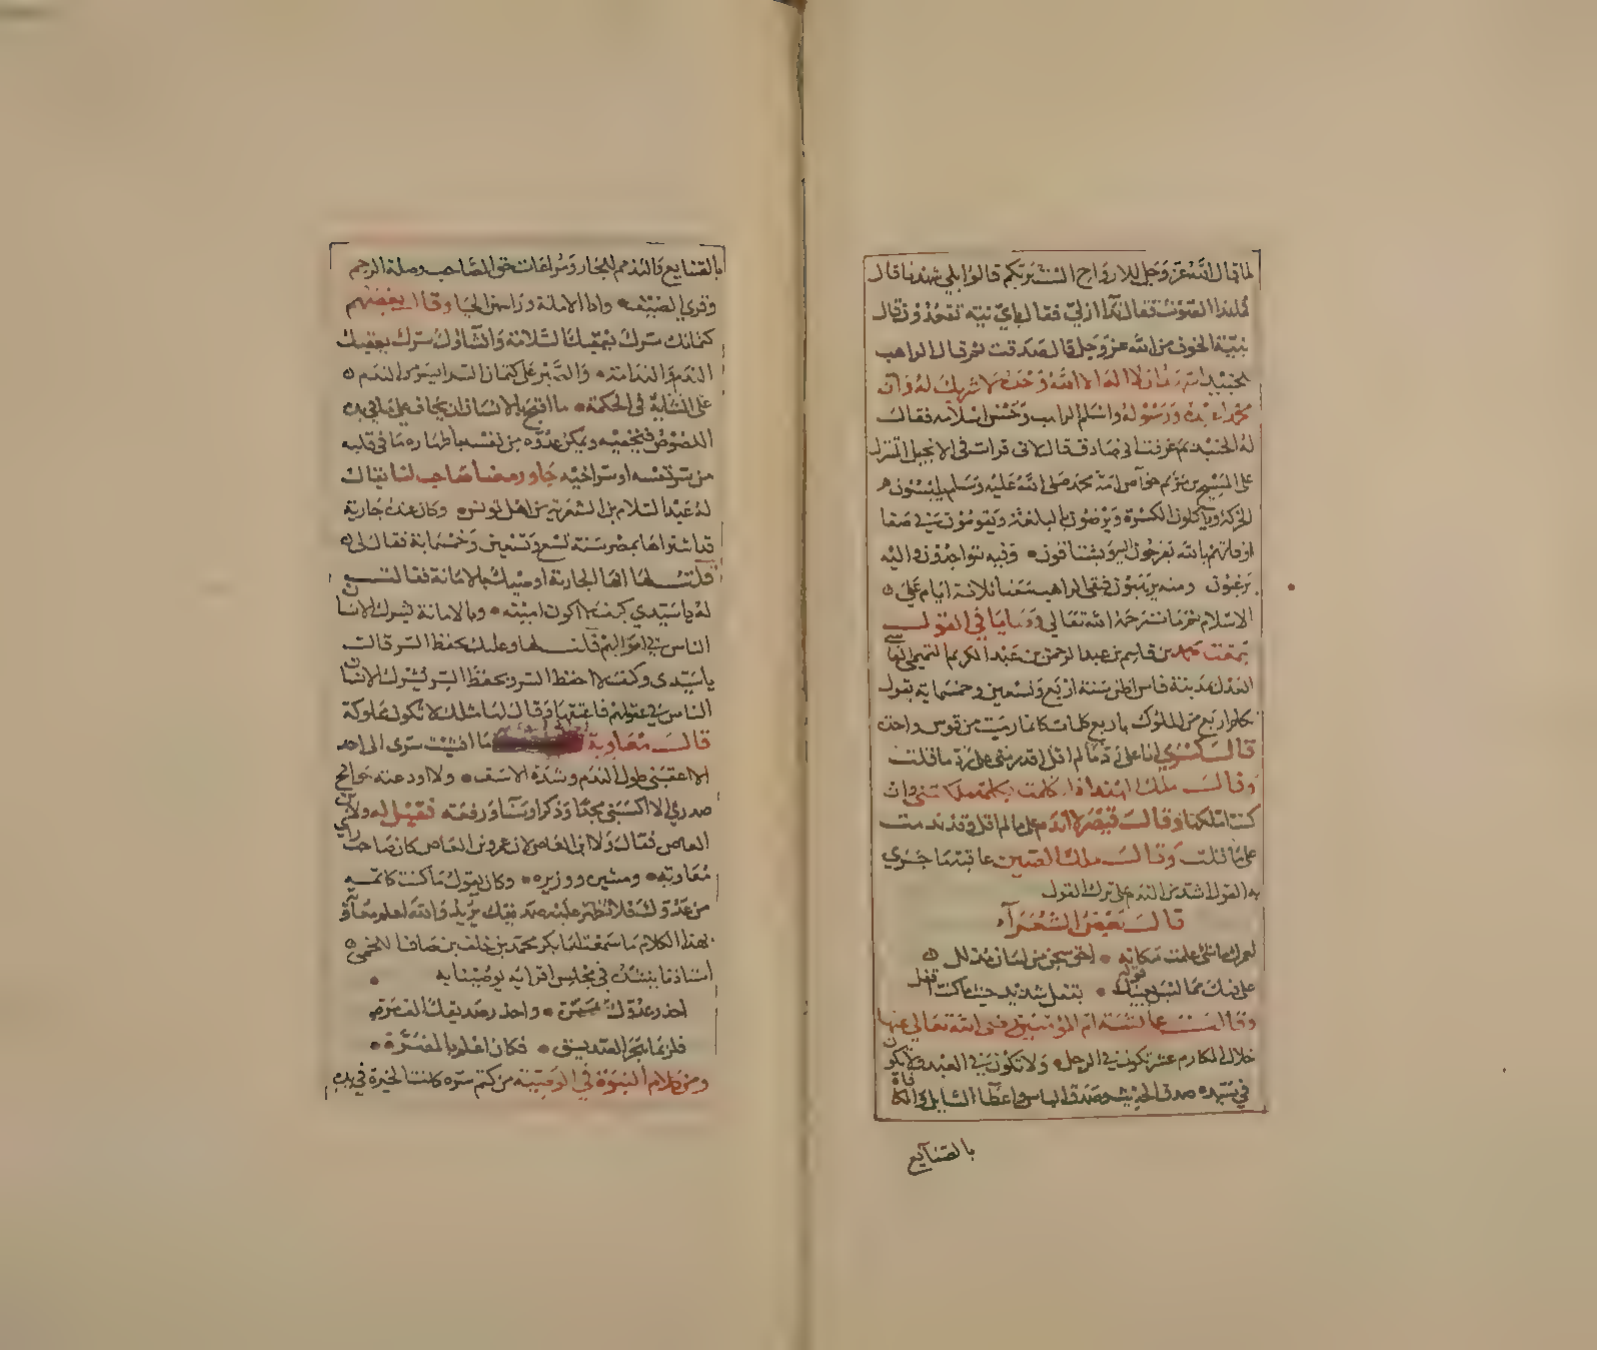 لما قال الله عز وجل للارواح الست بربكم قالوا بلي شهدنا قال
فقال باي نية تقعد وقال
بنية الخوف من الله عز وجل قال صدقت ثم قال الراهب
للجنيد اشهد ان لا اله الا الله وحده لا شريك له وان
محمدا عبده ورسوله واسلم الراهب وحسن اسلامه فقال
له الجنيد بم عرفت اني صادق قال لاني قرات في الانجيل المنزل
على المسيح بن مريم خواص امة محمد صلى الله عليه وسلم يلبسون
الخرقة وياكلون الكسرة ويرضون بالبلغة ويقومون في صفا
اوقاتهم بالله يفرحون واليه يشتاقون وفيه يتواجدون واليه
يرغبون ومنه يرهبون فبقي الراهب معنا ثلاثة ايام علي
الاسلام ثم مات رحمة الله تعالي
سمعت محمد بن قاسم بن عبد الرحمن بن عبد الكريم التميمي
العدل بمدينة فاس اظن سنة اربع وتسعين وخمسماية يقول
تكلم اربع من الملوك باربع كلمات كانما رميت من قوس واحد
قال كسري انا على رد ما لم اقل اقدر مني على رد ما قلت
وقال ملك الهند اذا تكلمت بكلمة ملكتني وان
كنت املكها وقال قيصر لا اندم على ما لم اقل وقد ندمت
على ما قلت وقال ملك الصين عاقبة ما جري
به القول اشد من الندم على ترك القول
قال بعض الشعرآء
لعمرك ما شي علمت مكانه احق بسجن من لسان مذلل
على فيك مما ليس يعنيك قوله بقفل شديد حيث ما كنت اقفل
وقالت عائشة ام المؤمنين رضي الله تعالي عنها
خلال المكارم عشر تكون في الرجل ولا تكون في
في سيده صدق الحديث وصدق الباس واعطا السايل والمكافاة
بالصنايع
بالصنايع والتذمم للجار ومراعات حق الصاحب وصلة الرحم
وقري الضيف وادا الامانة وراسهن الحيا وقال بعضهم
كتمانك سرك يعقبك السلامة وافشاؤك سرك يعقبك
الندم والندامة والصبر على كتمان السر ايسر من الندم
على افشايه في الحكمة ما اقبح بالانسان ان يخاف على ما في يده
اللصوص فيخفيه ويمكن عدوه من نفسه باظهاره ما في قلبه
من سر نفسه او سر اخيه جاور صاحب لنا يقال
له عبد السلام بن من اهل تونس وكان عنده جارية
قد اشتراها بمصر سنة تسع وتسعين وخمسماية فقال لي
قلت لها ايها الجارية اوصيك بالامانة فقالت
له يا سيدي كيف لا اكون امينة وبالامانة يشرك الانسان
الناس في اموالهم قلت لها وعليك بحفظ السر قالت
يا سيدي وكيف لا احفظ السر وبحفظ السر يشرك الانسان
الناس في عقولهم فاعتقها وقال لها مثلك لا تكون مملوكة
قال معاوية ما افشيت سري الى احد
الا اعقبني طول الندم وشدة الاسف ولا اودعته جوانح
صدري الا اكسبني مجدا وذكرا وسنا ورفعة فقيل له ولا ابن
العاص فقال ولا ابن العاص لان عمرو بن العاص كان صاحب راي
معاوية ومشيره ووزيره وكان يقول ما كنت كاتمه
من عدوك فلا تظهر عليه صديقك يريد والله اعلم معاوية
بهذا الكلام ما سمعت ابا بكر محمد بن خلف بن صاف اللخمي
استاذنا ينشد في مجلس اقرايه يوصينا به
احذر عدوك مرة واحذر صديقك الف مرة
فلربما هجر الصديق فكان اعلم بالمضرة
ومن كلام النبوة في الوصية من كتم سره كانت الخيرة في يده